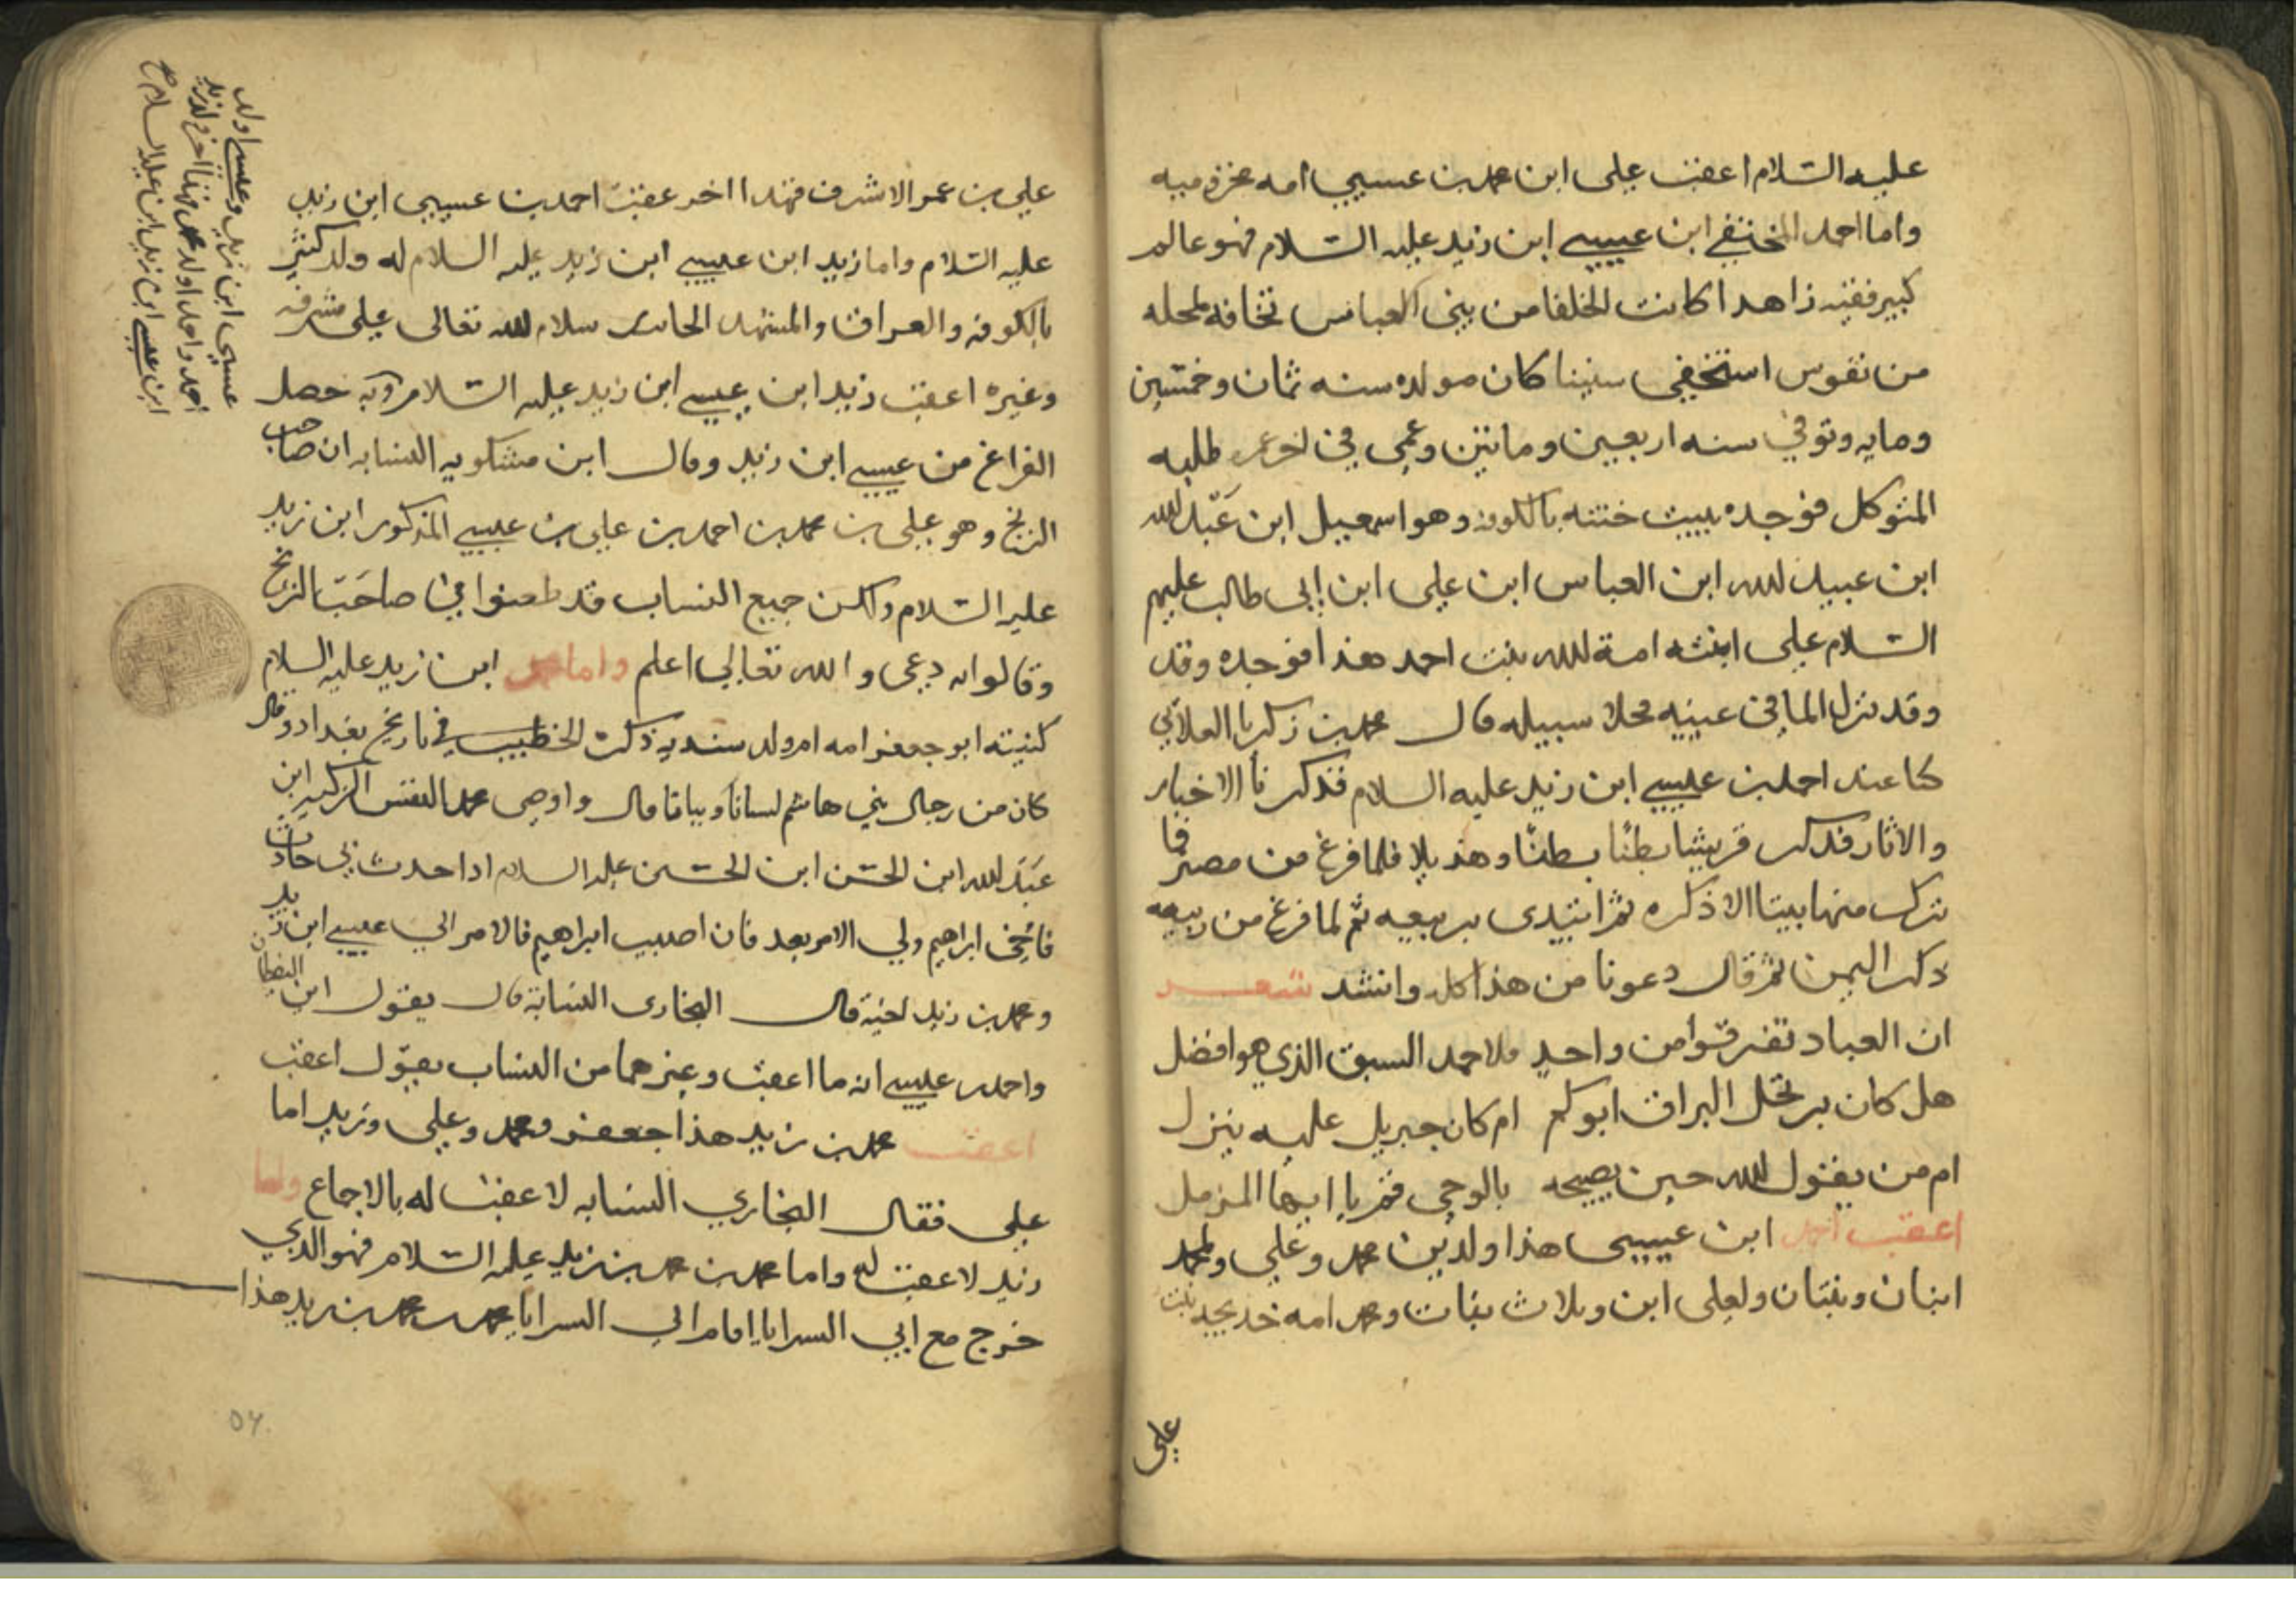 عليه السلام اعقب على ابن محمد بن عيسى امه مخزوميه
واما احمد المختفي ابن عيسى ابن زيد عليه السلام فهو عالم
كبير فقيه زاهدا كانت الخلفا من بنى العباس تخافه لمحله
من نفوس استخفى سنينا كان مولده سنه ثمان وخمسين
ومايه وتوفي سنه اربعين وماتين وعمى في اخر عمره طلبه
المتوكل فوجده ببيت ختنه بالكوفه وهو اسمعيل ابن عبد الله
ابن عبيد الله ابن العباس ابن على ابن ابى طالب عليهم
السلام على ابنته امة الله بنت احمد هذا فوجده وقد
وقد نزل الما في عينيه فخلا سبيله قال محمد بن زكريا العلابي
كنا عند احمد بن عيسى ابن زيد عليه السلام فذكرنا الاخبار
والاثار فذكر قريشا بطنا بطنا وهذيلا فلما فرغ من مصر فما
ترك منها بيتا الا ذكره ثم ابتدى بربيعه ثم لما فرغ من ربيعه
ذكر اليمن ثم قال دعونا من هذا كله وانشد شعر
ان العباد تفرقوا من واحد فلاحمد السبق الذي هو افضل
هل كان يرتحل البراق ابوكم ام كان جبريل عليه ينزل
ام من يقول الله حين يصيحه بالوحي قم يا ايها المزمل
اعقب احمد ابن عيسى هذا ولدين محمد وعلي ولمحمد
ابنان وبنتان ولعلى ابن وثلاث بنات ومحمد امه خديجه بنت
علي
علي بن عمر الاشرف فهذا اخر عقب احمد بن عيسى ابن زيد
عليه السلام واما زيد ابن عيسى ابن زيد عليه السلام له ولد كثير
بالكوفه والعراق والمشهد الحاير سلام الله تعالى على مشرفه
وغيره اعقب زيد ابن عيسى ابن زيد عليه السلام وبه حصل
الفراغ من عيسى ابن زيد وقال ابن مشكويه النسابه ان صاحب
الزنج وهو على بن محمد بن احمد بن على بن عيسى المذكور ابن زيد
عليه السلام ولكن جميع النساب قد طعنوا في صاحب الزنج
وقالوا انه دعى والله تعالي اعلم واما محمد ابن زيد عليه السلام
كنيته ابو جعفر امه ام ولد سنديه ذكره الخطيب في تاريخ بغداد وقال
كان من رجال بني هاشم لسانا وبيانا قال واوصى محمد النفس الزكيه ابن
عبد الله ابن الحسن ابن الحسن عليه السلام اذا حدث بي حادث
فاخى ابراهيم ولي الامر بعد فان اصيب ابراهيم فالامر الي عيسى ابن زيد
ومحمد بن زيد اخيه قال البخارى النسابة قال يقول ابن القطان
واحمد بن عيسى انه ما اعقب وغيرهما من النساب يقول اعقب
اعقب محمد بن زيد هذا جعفر ومحمد وعلي وزيد اما
علي فقال البخاري النسابه لا عقب له بالاجماع واما
زيد لا عقب له واما محمد بن محمد بن زيد عليه السلام فهو الذي
خرج مع ابي السرايا اقام ابي السرايا محمد بن محمد بن زيد هذا
عيسى ابن زيد وعيسى اولد
احمد واحمد اولد محمد فهذا اخر ولد زيد
ابن عيسى ابن زيد ابن علي عليه السلام
٥٢